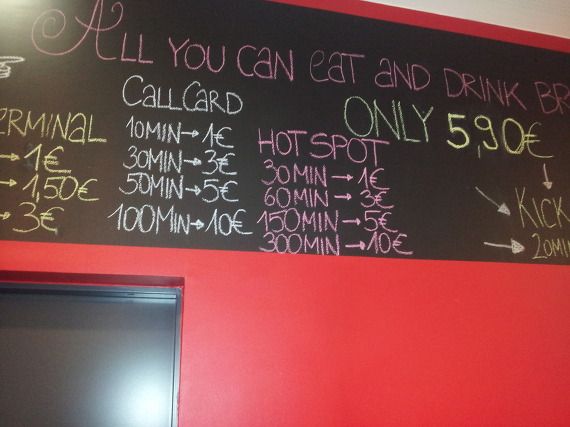 ALL YOU CAN EAT AND DRINK BR
ONLY 5,90€
ERMINAL
→ 1€
→ 1,50€
→ 3€
CALLCARD
10MIN→1€
30MIN→3€
50MIN→5€
100MIN→10€
HOTSPOT
30MIN→1€
60MIN→3€
150MIN→5€
300MIN→10€
KICK
20MIN